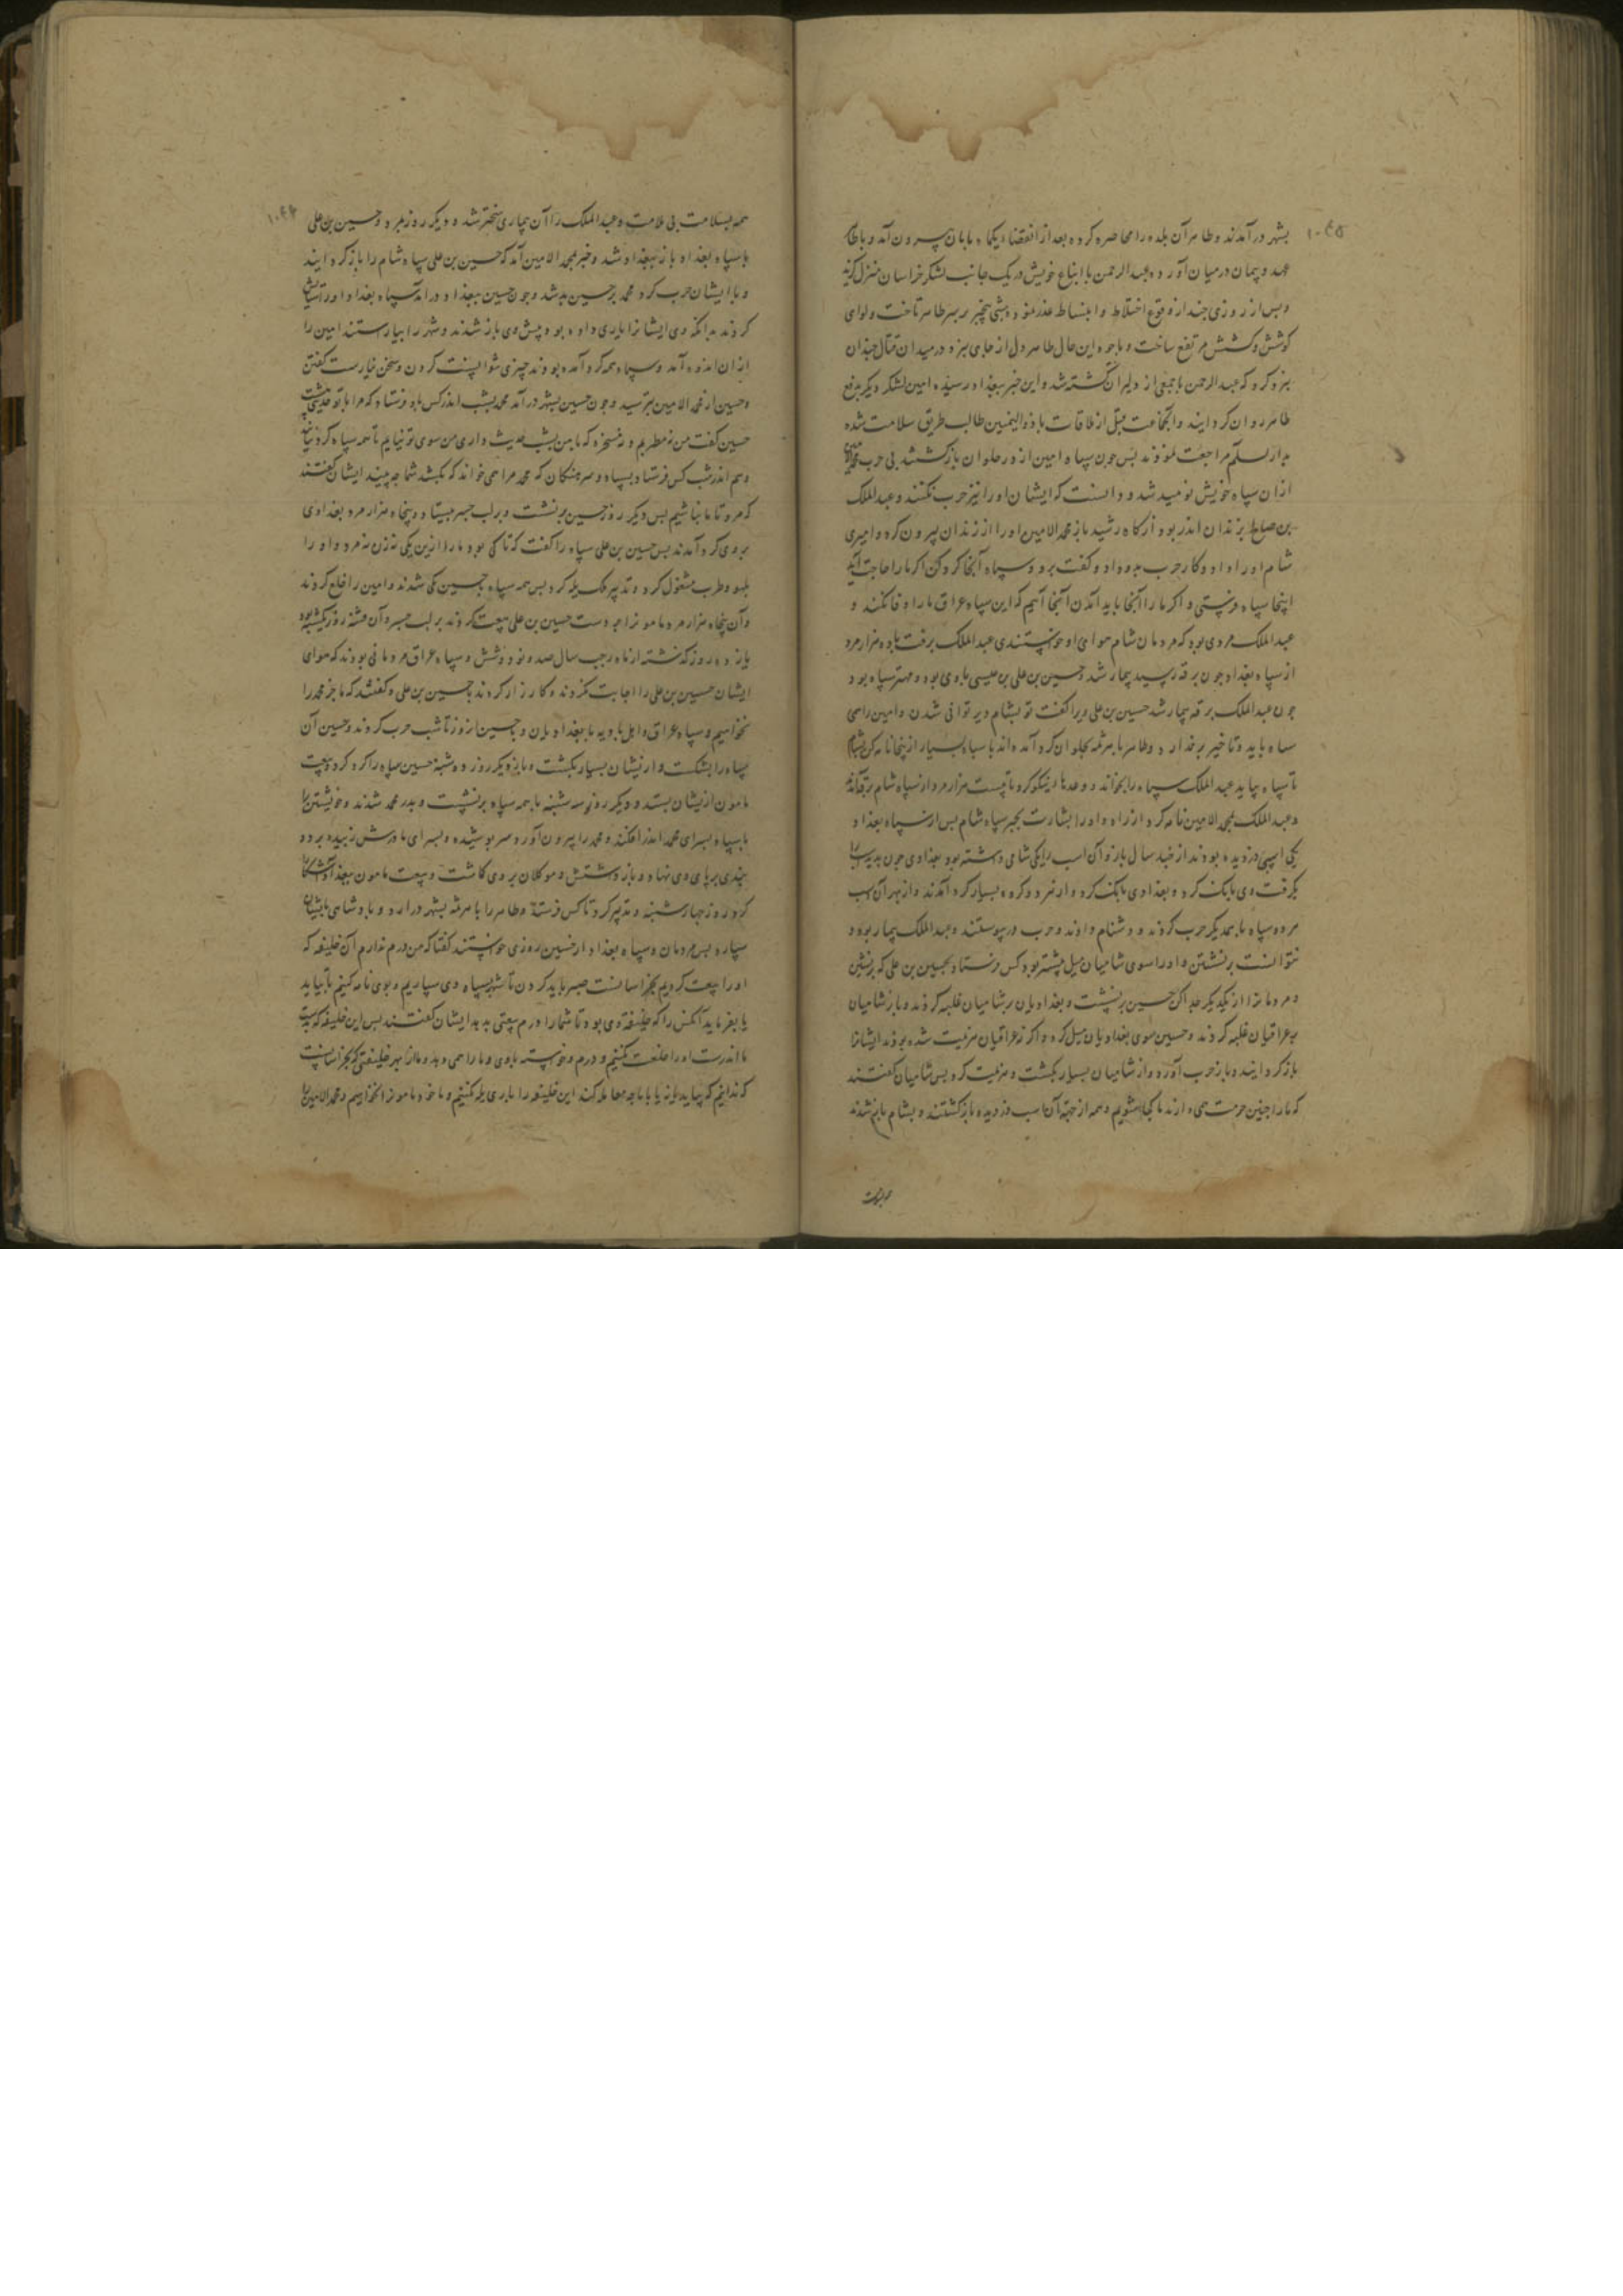 ۱۰۴۵
بشهر در آمدند و طاهر آن بلده را محاصره کرده بعد از انقضاء یکماه بامان بیرون آمد و با طاهر
عهد و پیمان در میان آورده عبد الرحمن با اتباع خویش در یک جانب لشکر خراسان منزل گزید
و پس از روزی چند از وقوع اختلاط و انبساط غدر نمود و شبی بیخبر بر سر طاهر تاخت و لوای
کوشش و کشش مرتفع ساخت و با وجود این حال طاهر دل از جای نبرد و در میدان قتال چندان
نبرد کرد که عبد الرحمن با جمعی از دلیران کشته شد و این خبر ببغداد رسیده امین لشکر دیگر بدفع
طاهر روان کردانید و آنجماعت قبل از ملاقات با ذو الیمینین طالب طریق سلامت شده
بدار السلم مراجعت نمودند پس چون سپاه امین از در حلوان بازگشتند بی حرب محمد
ازان سپاه خویش نومید شد و دانست که ایشان او را نیز حرب نکنند و عبد الملک
بن صالح بزندان اندر بود از گاه رشید باز محمد الامین او را از زندان بیرون کرد و امیری
شام او را داد و کار حرب بدو داد و گفت برو و سپاه آنجا گرد کن اگر ما را حاجت آید
اینجا سپاه فرستی و اگر ما را آنجا باید آمدن آنجا آییم که این سپاه عراق ما را وفا نکنند و
عبد الملک مردی بود که مردمان شام هوای او خواستندی عبد الملک برفت با ده هزار مرد
از سپاه بغداد چون برقه رسید بیمار شد حسین بن علی بن عیسی با وی بود و مهتر سپاه بود
چون عبد الملک برقه بیمار شد حسین بن علی ویرا گفت تو بشام دیر توانی شدن و امین را همی
سپاه باید و تاخیر بر ندارد و طاهر با هرثمه بحلوان گرد آمده اند با سپاه بسیار از ینجا نامه کن بشام
تا سپاه بیاید عبد الملک سپاه را بخواند و وعدها نیکو کرد تا بیست هزار مرد از سپاه شام برقه آمدند
و عبد الملک بمحمد الامین نامه کرد از راه و او را بشارت بخبر سپاه شام پس از سپاه بغداد
یکی اسپی دزدیده بودند از چند سال باز و آن اسب را یکی شامی داشته بود بغدادی چون بدید اسب را
بگرفت وی بانک کرد و بغدادی بانک کرد و از هر دو گروه بسیار گرد آمدند و از بهر آن اسب
هر دو سپاه با یکدیگر حرب کردند و دشنام دادند و حرب در پیوستند و عبد الملک بیمار بود و
نتوانست برنشستن و او را سوی شامیان میل بیشتر بود کس فرستاد بحسین بن علی که برنشین
و مردمانرا از یکدیگر جدا کن حسین برنشست و بغدادیان بر شامیان غلبه کردند و باز شامیان
بر عراقیان غلبه کردند و حسین سوی بغدادیان میل کرد و اگر نه عراقیان هزیمت شده بودند ایشانرا
بازگردانید و باز حرب آورد و از شامیان بسیار بکشت و هزیمت کرد پس شامیان گفتند
که ما را چنین حرمت همی دارند ما کجا شویم و همه از جهة آن اسب دزدیده بازگشتند و بشام باز شدند
۱۰۴۶
همه بسلامت بی ملامت و عبد الملک را آن بیماری سختتر شد و دیگر روز بمرد و حسین بن علی
با سپاه بغداد باز ببغداد شد و خبر بمحمد الامین آمد که حسین بن علی سپاه شام را بازگردانید
و با ایشان حرب کرد محمد بر حسین بد شد و چون حسین ببغداد در آمد سپاه بغداد او را ستایش
کردند بدانکه وی ایشانرا یاری داده بود و پیش وی باز شدند و شهر را بیاراستند امین را
ازان اندوه آمد و سپاه همه گرد آمده بودند چیزی نتوانست کردن و سخن نیارست گفتن
و حسین از محمد الامین بترسید و چون حسین بشهر در آمد محمد بشب اندر کس بدو فرستاد که مرا با تو حدیثی است
حسین گفت من نه مطربم و نه مسخره که با من بشب حدیث داری من سوی تو نیایم تا همه سپاه گرد نیاید
و هم اندر شب کس فرستاد بسپاه و سرهنگان که محمد مرا همی خواند که بکشد شما چه بینید ایشان گفتند
که مرو تا ما نباشیم پس دیگر روز حسین برنشست و بر لب جسر بیستاد و پنجاه هزار مرد بغدادی
بر وی گرد آمدند پس حسین بن علی سپاه را گفت که تا کی بود ما را ازین یکی نه زن نه مرد و او را
بلهو و طرب مشغول کرد و تدبیر ملک یله کرد پس همه سپاه با حسین یکی شدند و امین را خلع کردند
و آن پنجاه هزار مرد مامونرا بدست حسین بن علی بیعت کردند بر لب جسر و آن هفته روز یکشنبه بود
یازده روز گذشته از ماه رجب سال صد و نود و شش و سپاه عراق مردمانی بودند که هوای
ایشان حسین بن علی را اجابت نکردند و کارزار کردند با حسین بن علی و گفتند که ما جز محمد را
نخواهیم و سپاه عراق و اهل بادیه با بغدادیان و حسین آنروز تا شب حرب کردند و حسین آن
سپاه را بشکست و از نیشان بسیار بکشت و باز دیگر روز دوشنبه حسین سپاه را گرد کرد و بیعت
مامون ازیشان بستد و دیگر روز سه شنبه با همه سپاه برنشست و بدر محمد شدند و خویشتن را
با سپاه بسرای محمد اندر افکند و محمد را بیرون آورد سر پوشیده و بسرای مادرش زبیده برد و
بندی بر پای وی نهاد و باز داشتش و موکلان بر وی گماشت و بیعت مامون ببغداد آشکارا
کرد روز چهارشنبه و تدبیر کرد تا کس فرستد و طاهر را با هرثمه بشهر در آرد و پادشاهی بایشان
سپارد پس مردمان و سپاه بغداد از حسین روزی خواستند گفتا که من درم ندارم آن خلیفه که
او را بیعت کردیم بخراسانست صبر باید کردن تا شهر بسپاه وی سپاریم و بوی نامه کنیم تا بیاید
یا بفرماید آنکس را که خلیفة وی بود تا شما را درم بیعتی بدهد ایشان گفتند پس این خلیفه که بدست
ما اندرست او را خلعت کنیم و درم و خواسته با وی و ما را همی دهد و ما از بهر خلیفتی که بخراسانست
که ندانیم که بیاید یا نه یا با ما چه معامله کند این خلیفه را باری یله نکنیم و ما خود مامونرا نخواهیم و محمد الامین را